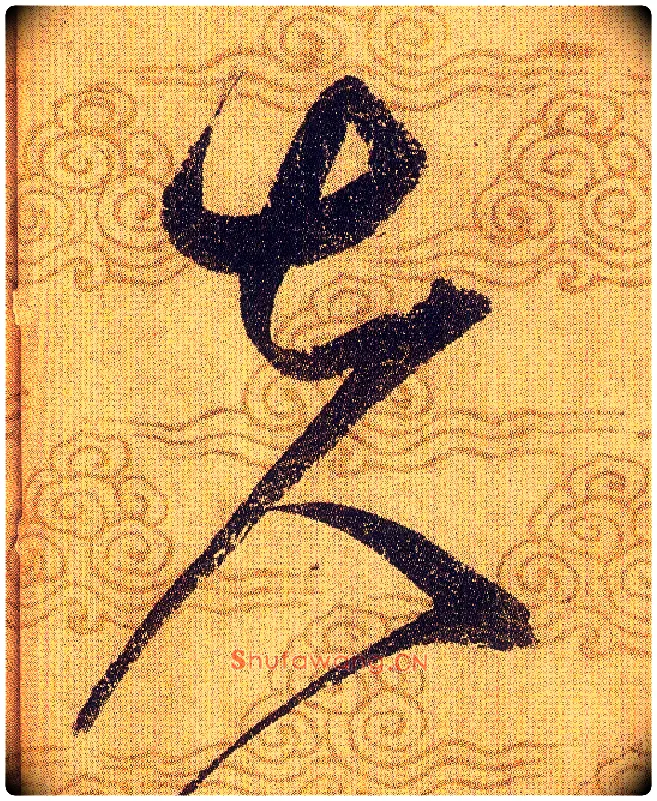 失
Shufawang.CN